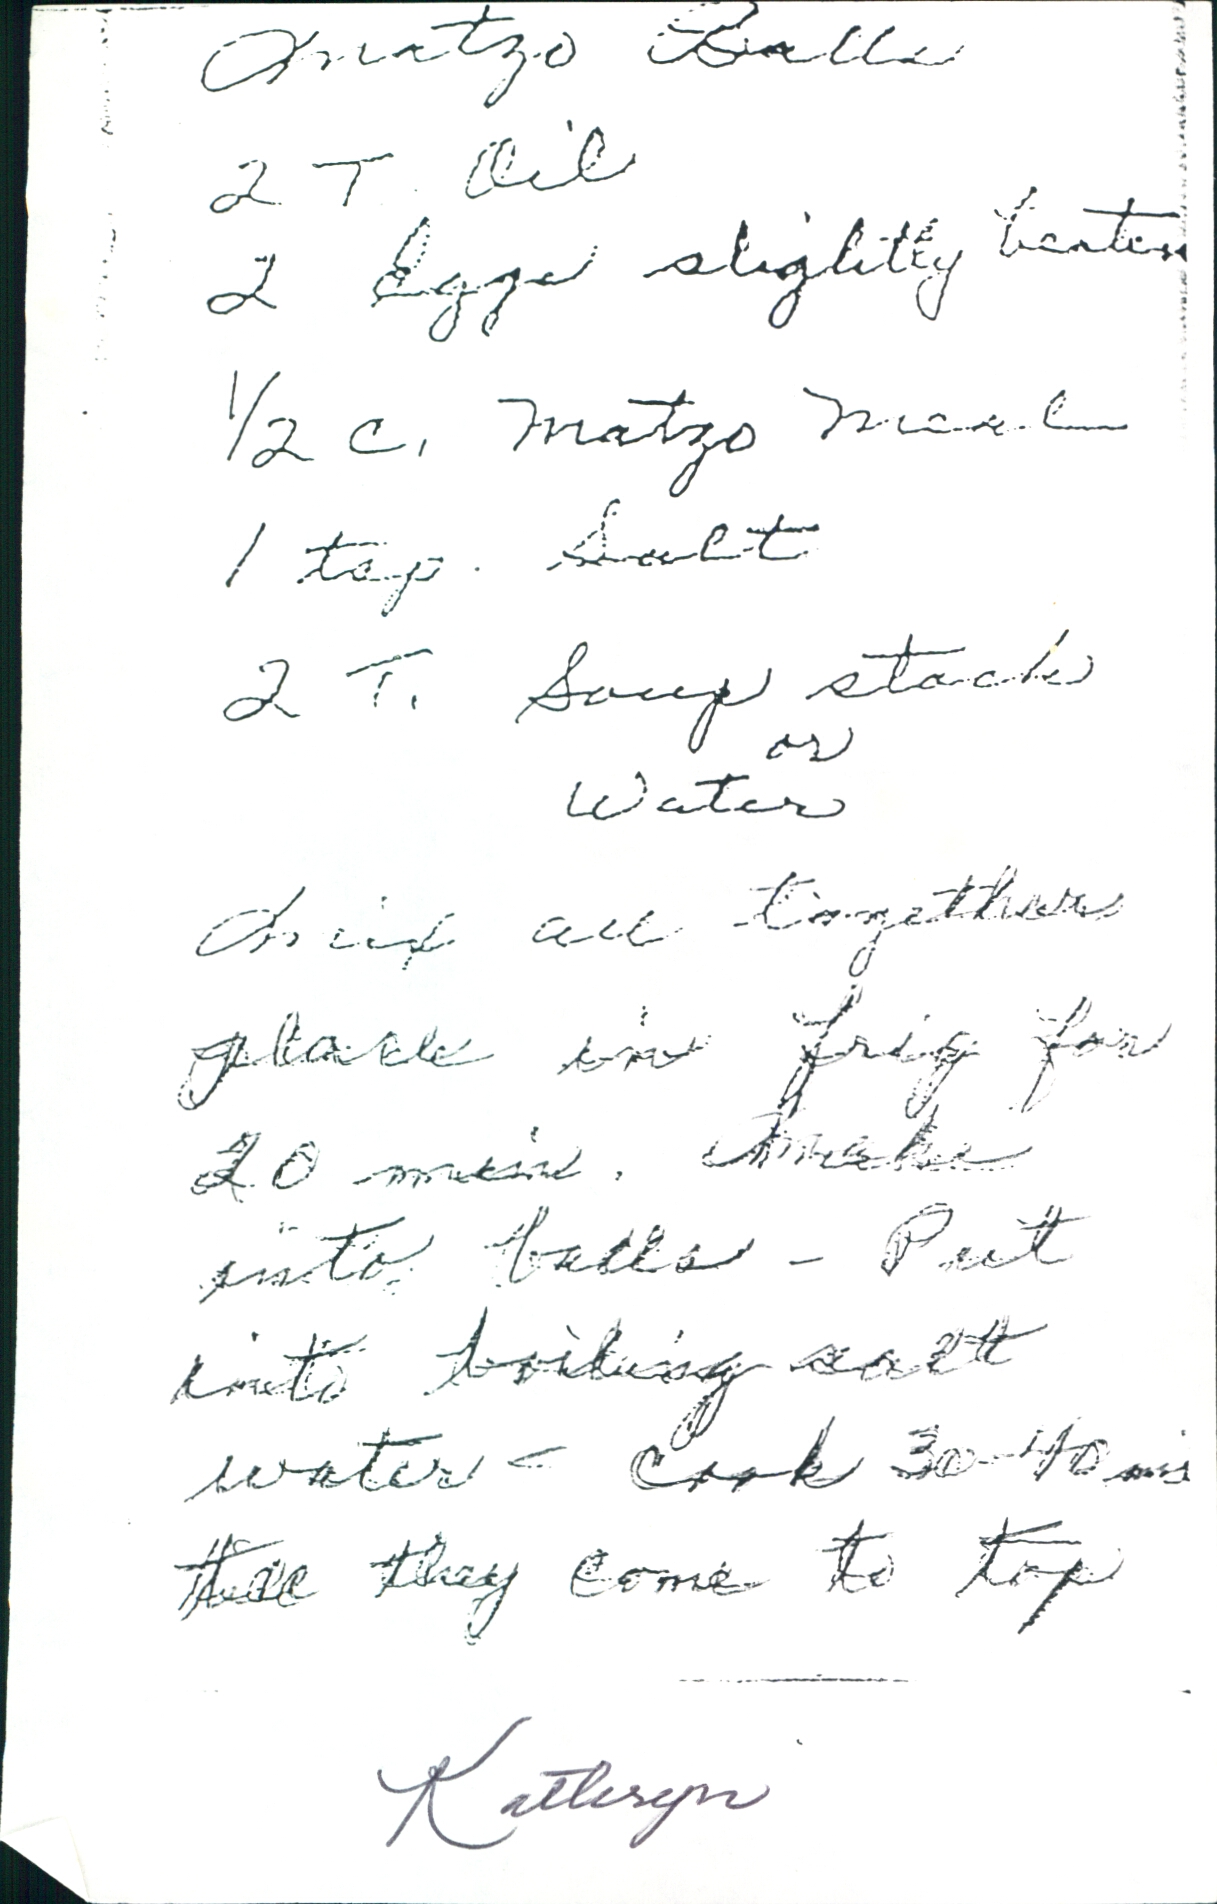 Matzo Balls
2 T. Oil
2 Eggs slightly beaten
1/2 c. Matzo Meal
1 tsp. Salt
2 T. Soup stock
or
Water
Mix all together
place in frig for
20 min. Make
into balls - Put
into boiling salt
water - Cook 30-40 min
till they come to top
Kathryn